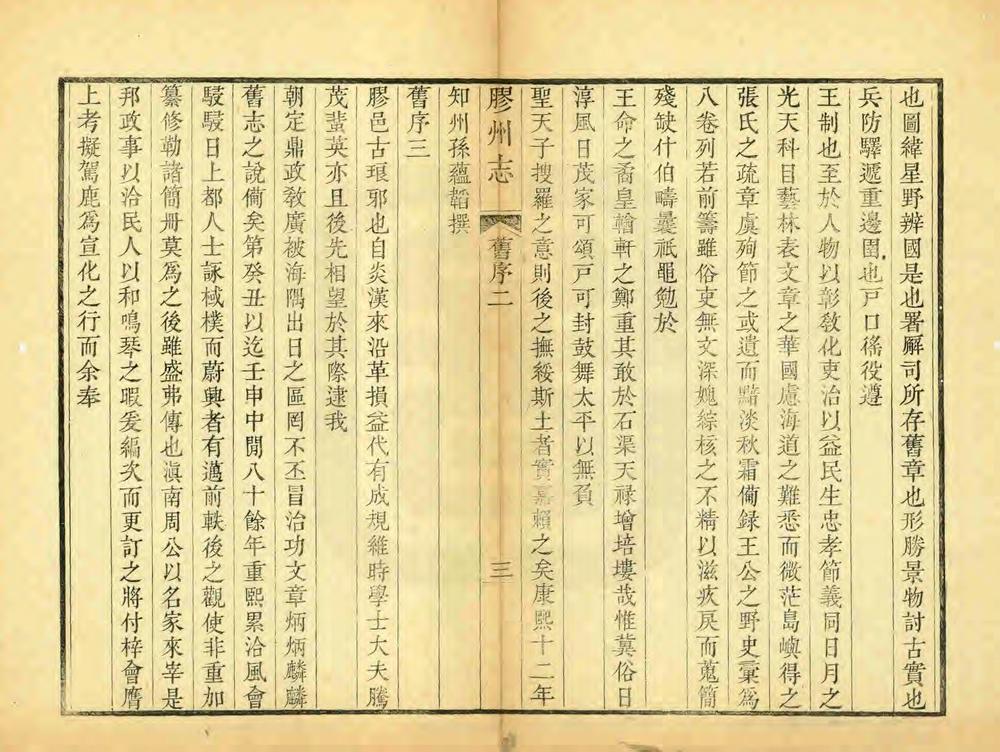 也圖緯星野辨國是也署廨司所存舊章也形勝景物討古實也
兵防驛遞重邊圉也戸口徭役遵
王制也至於人物以彰敎化吏治以益民生忠孝節義同日月之
光天科目藝林表文章之華國慮海道之難悉而微茫島嶼得之
張氏之疏章虞殉節之或遺而黯淡秋霜備録王公之野史彙爲
八卷列若前籌雖俗吏無文深媿綜核之不精以滋疚戾而蒐簡
殘缺什伯疇曩祇黽勉於
王命之矞皇輶軒之鄭重其敢於石渠天祿增培塿哉惟冀俗日
淳風日茂家可頌戸可封鼓舞太平以無負
聖天子搜羅之意則後之撫綏斯土者實嘉賴之矣康熙十二年
膠州志
舊序二
三
知州孫蘊韜撰
舊序三
膠邑古琅邪也自炎漢來沿革損益代有成規維時學士大夫騰
茂蜚英亦且後先相望於其際逮我
朝定鼎政敎廣被海隅出日之區罔不丕冒治功文章炳炳麟麟
舊志之說備矣第癸丑以迄壬申中閒八十餘年重熙累洽風會
駸駸日上都人士詠棫樸而蔚興者有邁前軼後之觀使非重加
纂修勒諸簡冊莫爲之後雖盛弗傳也滇南周公以名家來宰是
邦政事以洽民人以和鳴琴之暇爰編次而更訂之將付梓會膺
上考擬駕鹿爲宣化之行而余奉